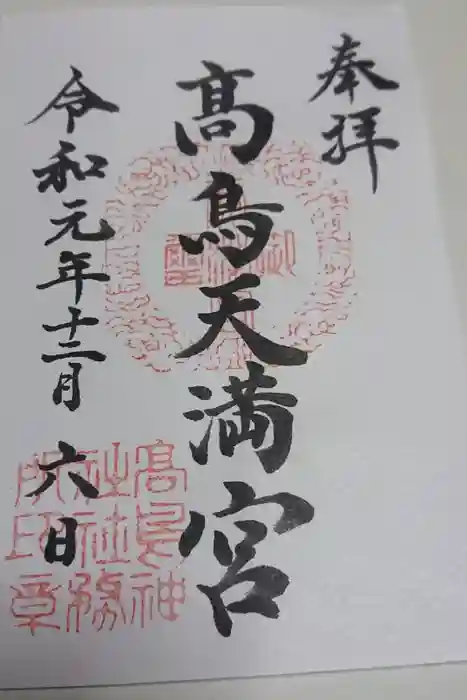 奉拝
髙鳥天満宮
令和元年十二月六日
髙鳥神
社社務
所印章